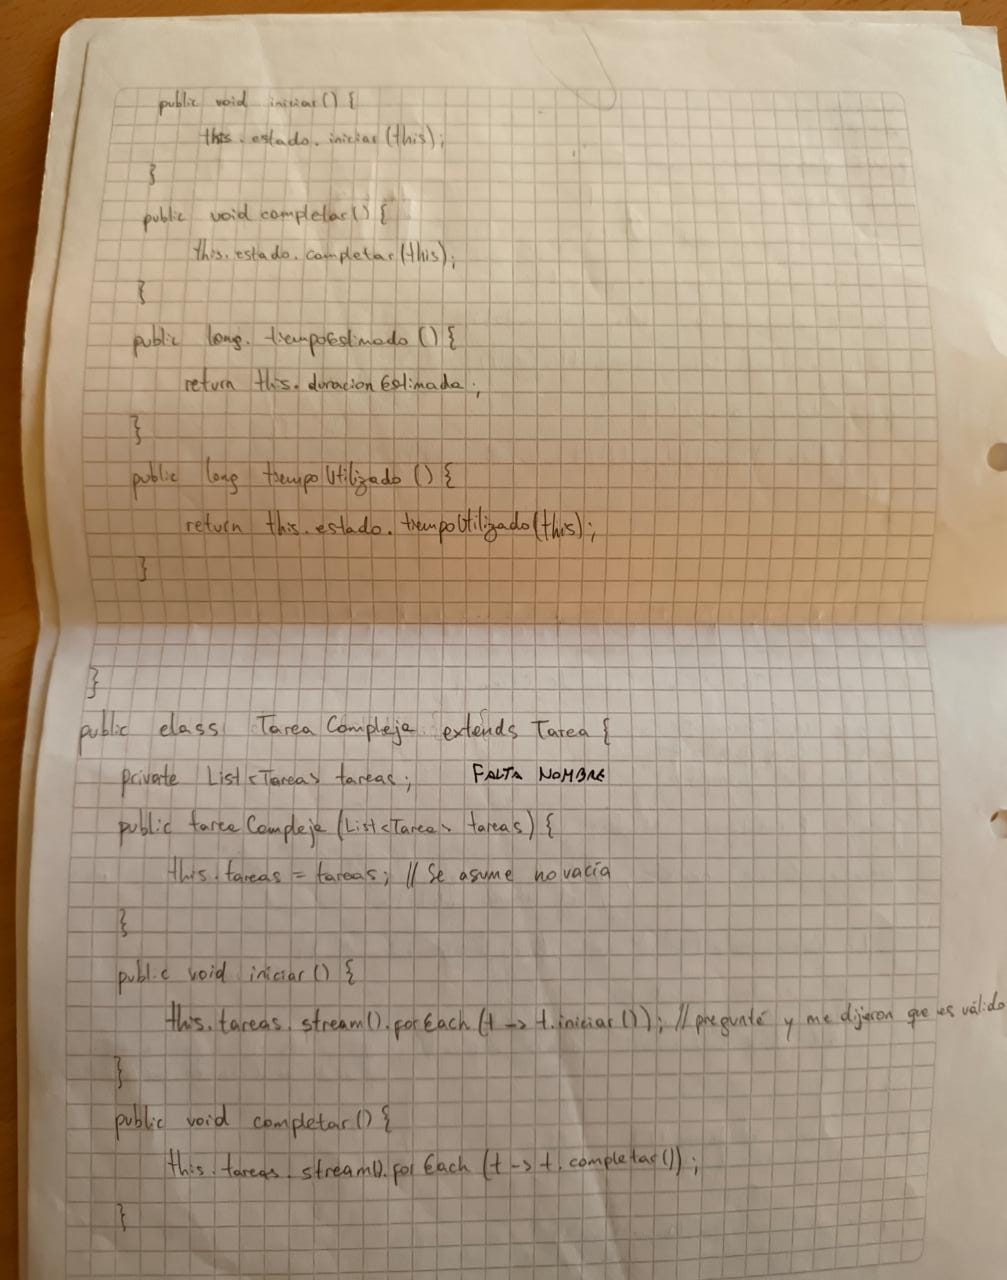 public void iniciar() {
this.estado.iniciar(this);
}
public void completar() {
this.estado.completar(this);
}
public long. tiempoEstimado () {
return this.duracionEstimada;
}
public long tiempoUtilizado () {
return this.estado.tiempoUtilizado(this);
}
}
public class TareaCompleja extends Tarea {
private List<Tarea> tareas; FALTA NOMBRE
public tareaCompleja (List<Tarea> tareas) {
this.tareas = tareas; // Se asume no vacía
}
public void iniciar () {
this.tareas.stream().forEach (t -> t.iniciar()); // pregunté y me dijeron que es válido
}
public void completar() {
this.tareas.stream().forEach (t -> t.completar());
}